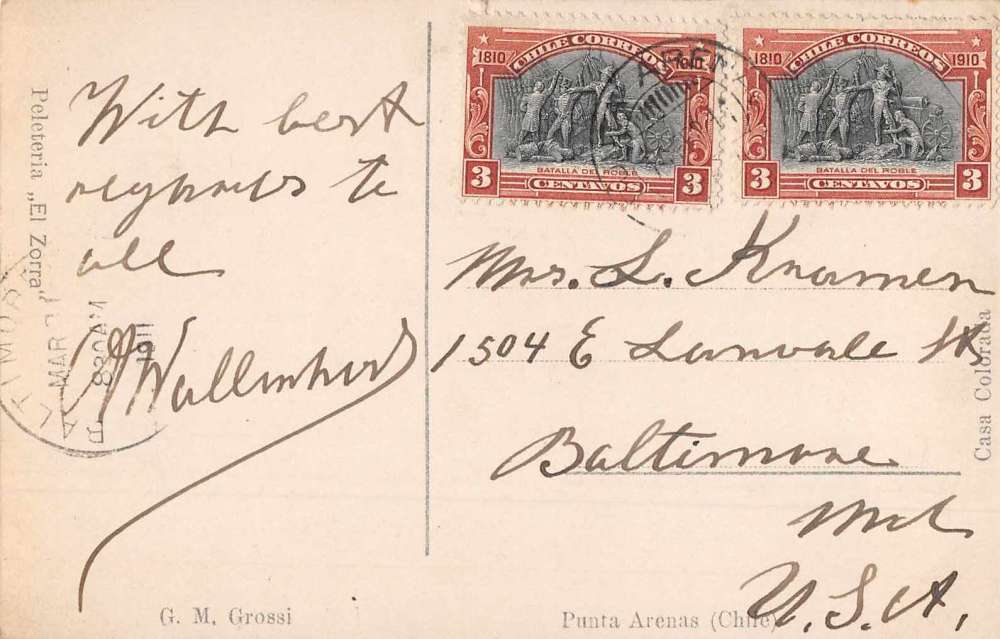 With best
regards to
all
Peleteria „El Zorro"
BALTIMOR
MAR
830AM
1911
CHILE CORREOS
1810
1910
BATALLA DEL ROBLE
3 CENTAVOS 3
CHILE CORREOS
1810 1910
BATALLA DEL ROBLE
3 CENTAVOS 3
ARENA
Mrs. L. Kramer
1504 E Lanvale St
Baltimore
Md
U.S.A.
Casa Colorada
G. M. Grossi
Punta Arenas (Chile)